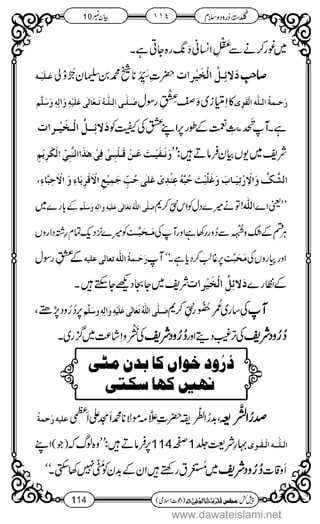 بیان نمبر 10 ۱۱٤ گلدستۂ درود و سلام
میں غور کرنے سے عقلِ انسانی دنگ رہ جاتی ہے۔
صاحبِ دَلائِلُ الْخَیْرات حضرت سَیِّدُنا شیخ محمد بن سلیمان جُزُولی عَلَیْہِ
رَحمۃُ اللّٰہِ القَوِی کا اِمتیازی وَصف عِشقِ رسول صَلَّی اللّٰہُ تَعَالٰی عَلَیْہِ وَاٰلِہٖ وَسَلَّم
ہے۔ آپ تحدیثِ نعمت کے طور پر اپنے عشق کی کیفیت کو دَلَائِلُ الْخَیْرات
شریف میں یوں بیان فرماتے ہیں: ’’وَنَفَیْتَ عَنْ قَلْبِیْ فِیْ ھٰذَا النَّبِیِّ الْکَرِیْمِ
الشَّکَّ وَالْاِرْتِیَابَ وَغَلَّبْتَ حُبَّہٗ عِنْدِیْ عَلٰی حُبِّ جَمِیْعِ الْاَقْرِبَاءِ وَالْاَحِبَّاءِ،
’’یعنی اے اللّٰہ! تو نے میرے دل کو اس نبی کریم صَلَّی اللّٰہُ تَعَالٰی عَلَیْہِ وَاٰلِہٖ وَسَلَّم کے بارے میں
ہر قسم کے شک و شبہ سے دور رکھا ہے اور آپ کی مَحَبَّت کو میرے نزدیک تمام رشتہ داروں
اور پیاروں کی مَحَبَّت پر غالب کر دیا ہے۔‘‘ آپ رَحْمَۃُ اللّٰہِ تعالٰی علیہ کے عشقِ رسول
کے نظارے دَلَائِلُ الْخَیْرات شریف میں جا بجا دیکھے جا سکتے ہیں۔
آپ کی ساری عمر نبی کریم صَلَّی اللّٰہُ تَعَالٰی عَلَیْہِ وَاٰلِہٖ وَسَلَّم پر درود پڑھتے،
دُرُود شریف کی ترغیب دیتے اور دُرُود شریف کی نشر و اشاعت میں گزری۔
دُرُود خواں کا بدن مٹی
نہیں کھا سکتی
صدرُ الشَّریعہ، بدرُ الطَّریقہ حضرتِ علامہ مولانا محمد امجد علی اعظمی علیہ رحمۃُ
اللّٰہِ القَوِی بہارِ شریعت جلد 1 صفحہ 114 پر فرماتے ہیں: ’’وہ لوگ کہ (جو) اپنے
اوقات دُرُود شریف میں مُستغرق رکھتے ہیں ان کے بدن کو مٹی نہیں کھا سکتی۔‘‘
114
www.dawateislami.net